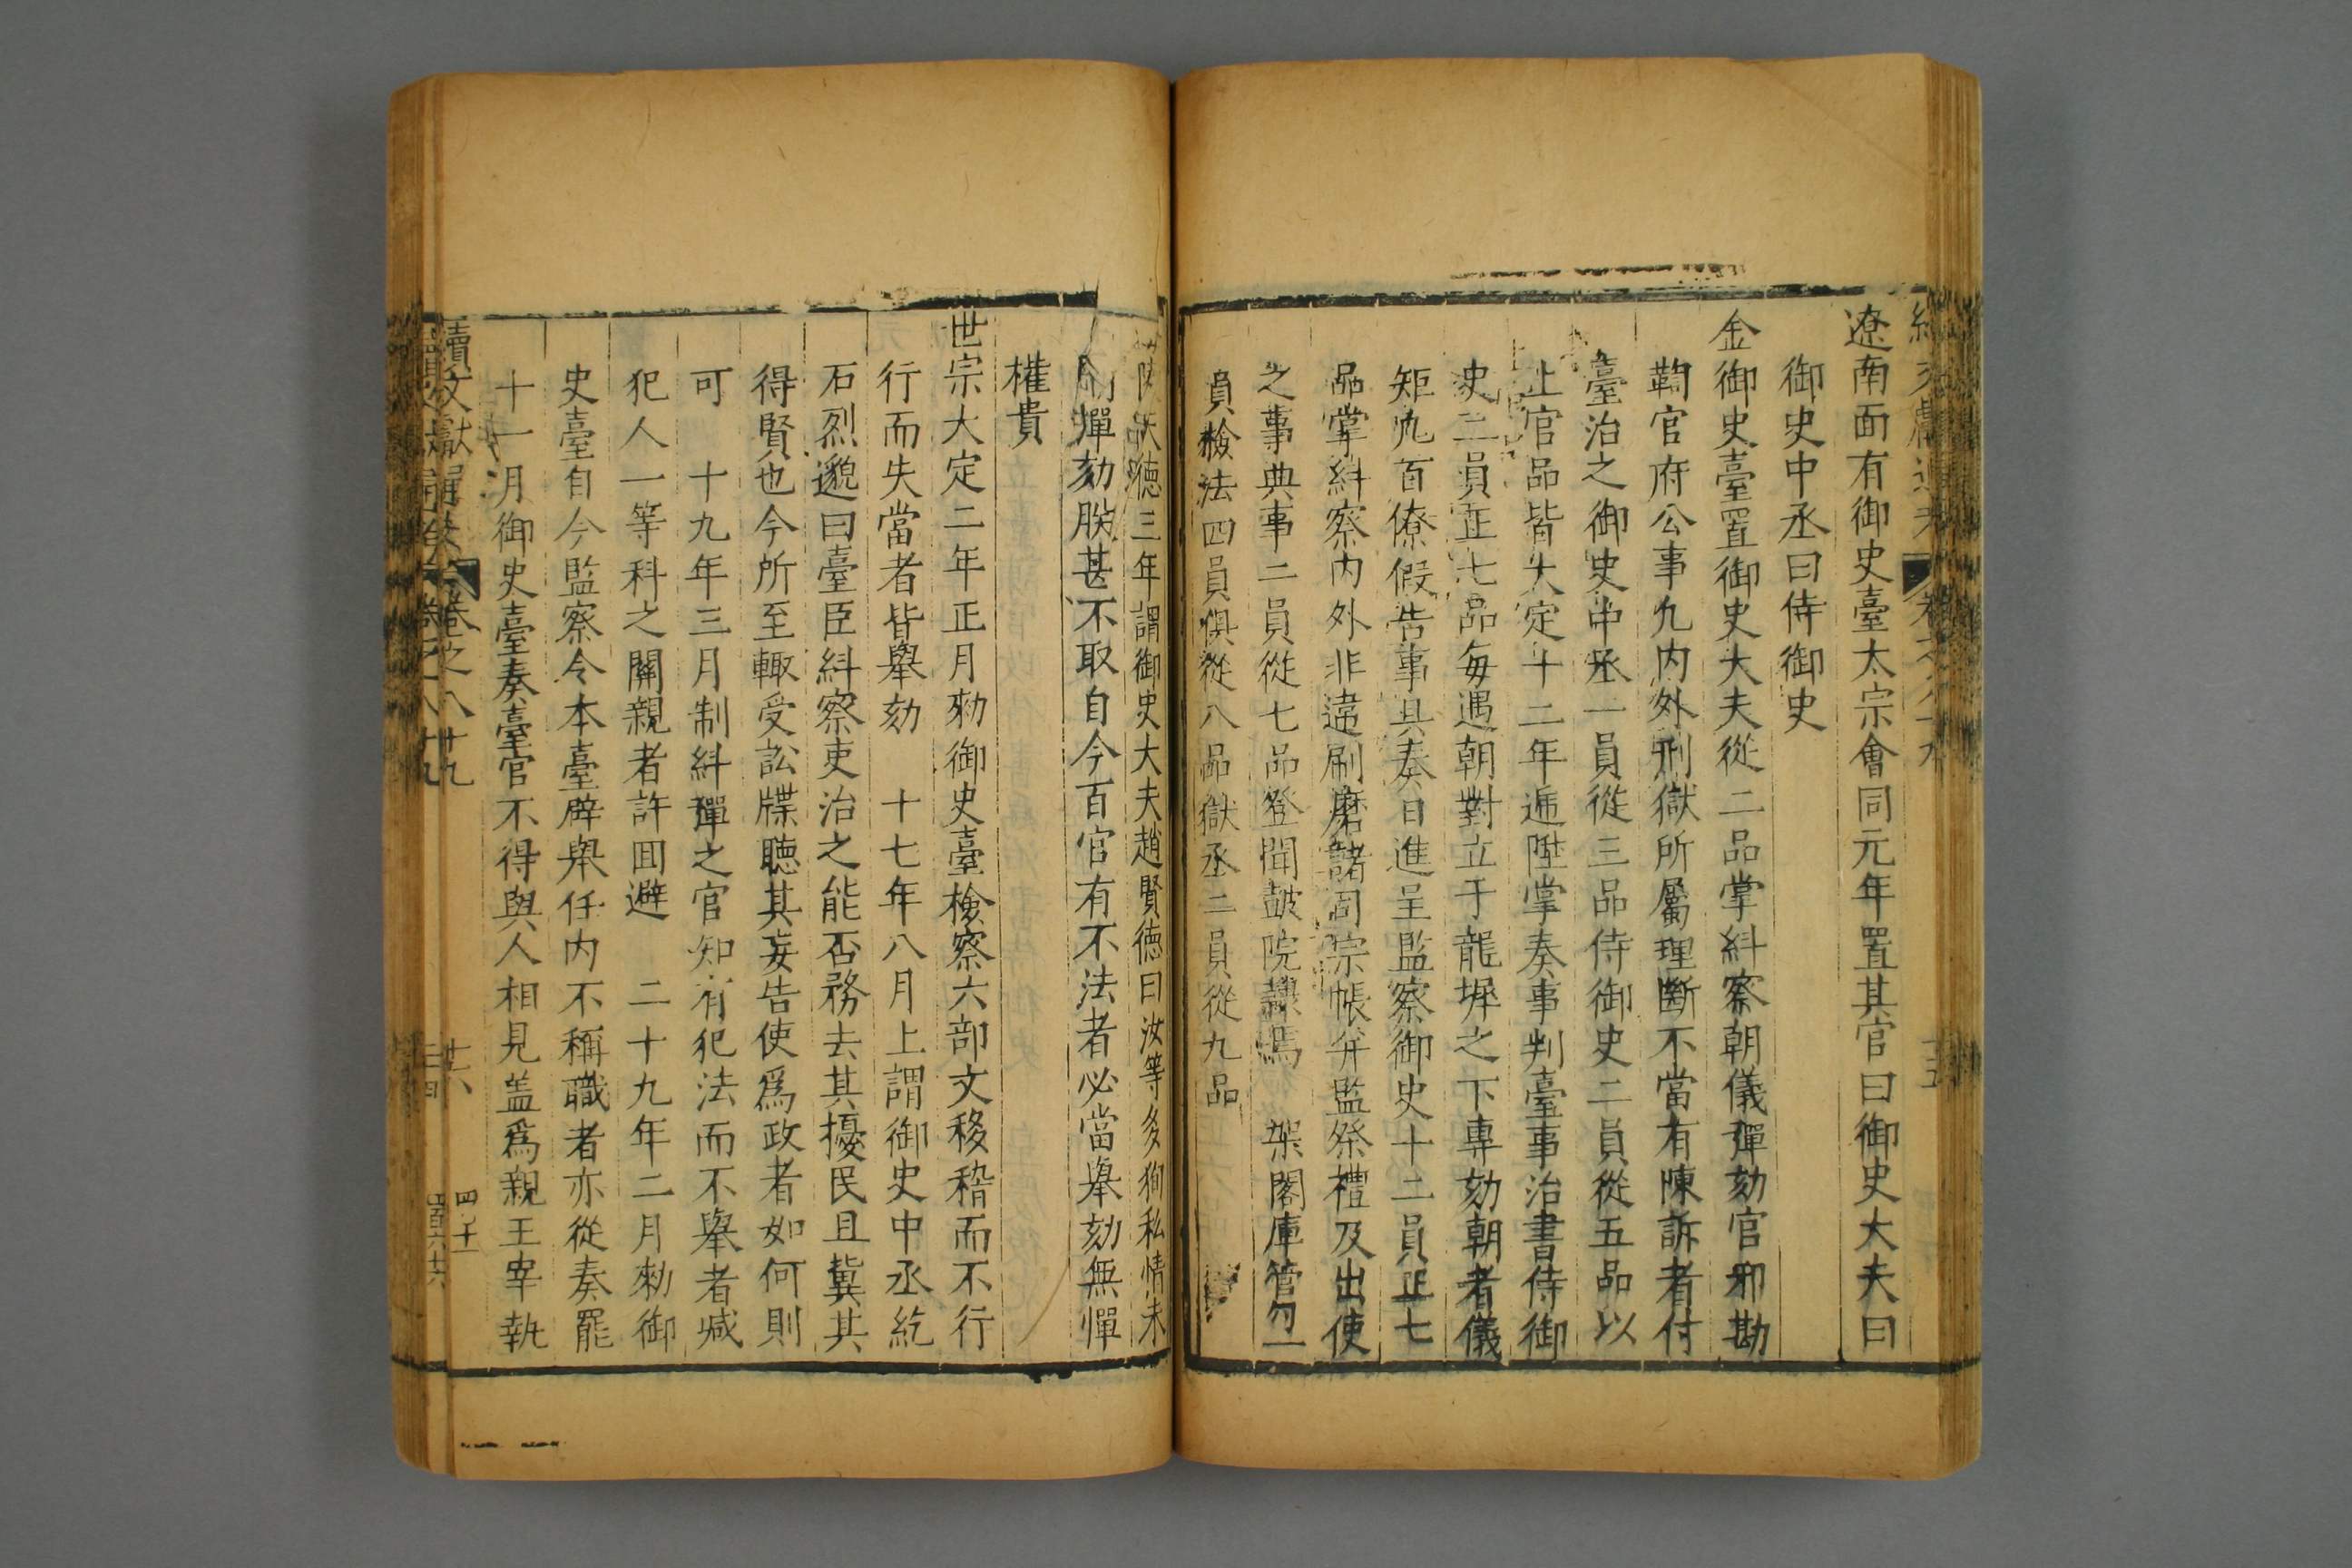 遼南面有御史臺太宗會同元年置其官曰御史大夫曰
御史中丞曰侍御史
金御史臺置御史大夫從二品掌糾察朝儀彈劾官邪勘
鞫官府公事凡内外刑獄所屬理斷不當有陳訴者付
臺治之御史中丞一員從三品侍御史二員從五品以
上官品皆大定十二年遞陞掌奏事判臺事治書侍御
史二員正七品每遇朝對立于龍墀之下專劾朝者儀
矩凡百僚假告事具奏目進呈監察御史十二員正七
品掌糾察内外非違刷磨諸司宗帳并監祭禮及出使
之事典事二員從七品登聞鼓院隸焉 架閣庫管勾一
員檢法四員俱從八品獄丞二員從九品
三年謂御史大夫趙賢德曰汝等多狥私情未
彈劾朕甚不取自今百官有不法者必當舉劾無憚
權貴
世宗大定二年正月勑御史臺檢察六部文移稽而不行
行而失當者皆舉劾 十七年八月上謂御史中丞紇
石烈邈曰臺臣糾察吏治之能否務去其擾民且冀其
得賢也今所至輙受訟牒聽其妄告使爲政者如何則
可 十九年三月制糾彈之官知有犯法而不舉者減
犯人一等科之關親者許囬避 二十九年二月勑御
史臺自今監察令本臺辟舉任内不稱職者亦從奏罷
十一月御史臺奏臺官不得與人相見盖爲親王宰執
續文獻通考 卷之八十九